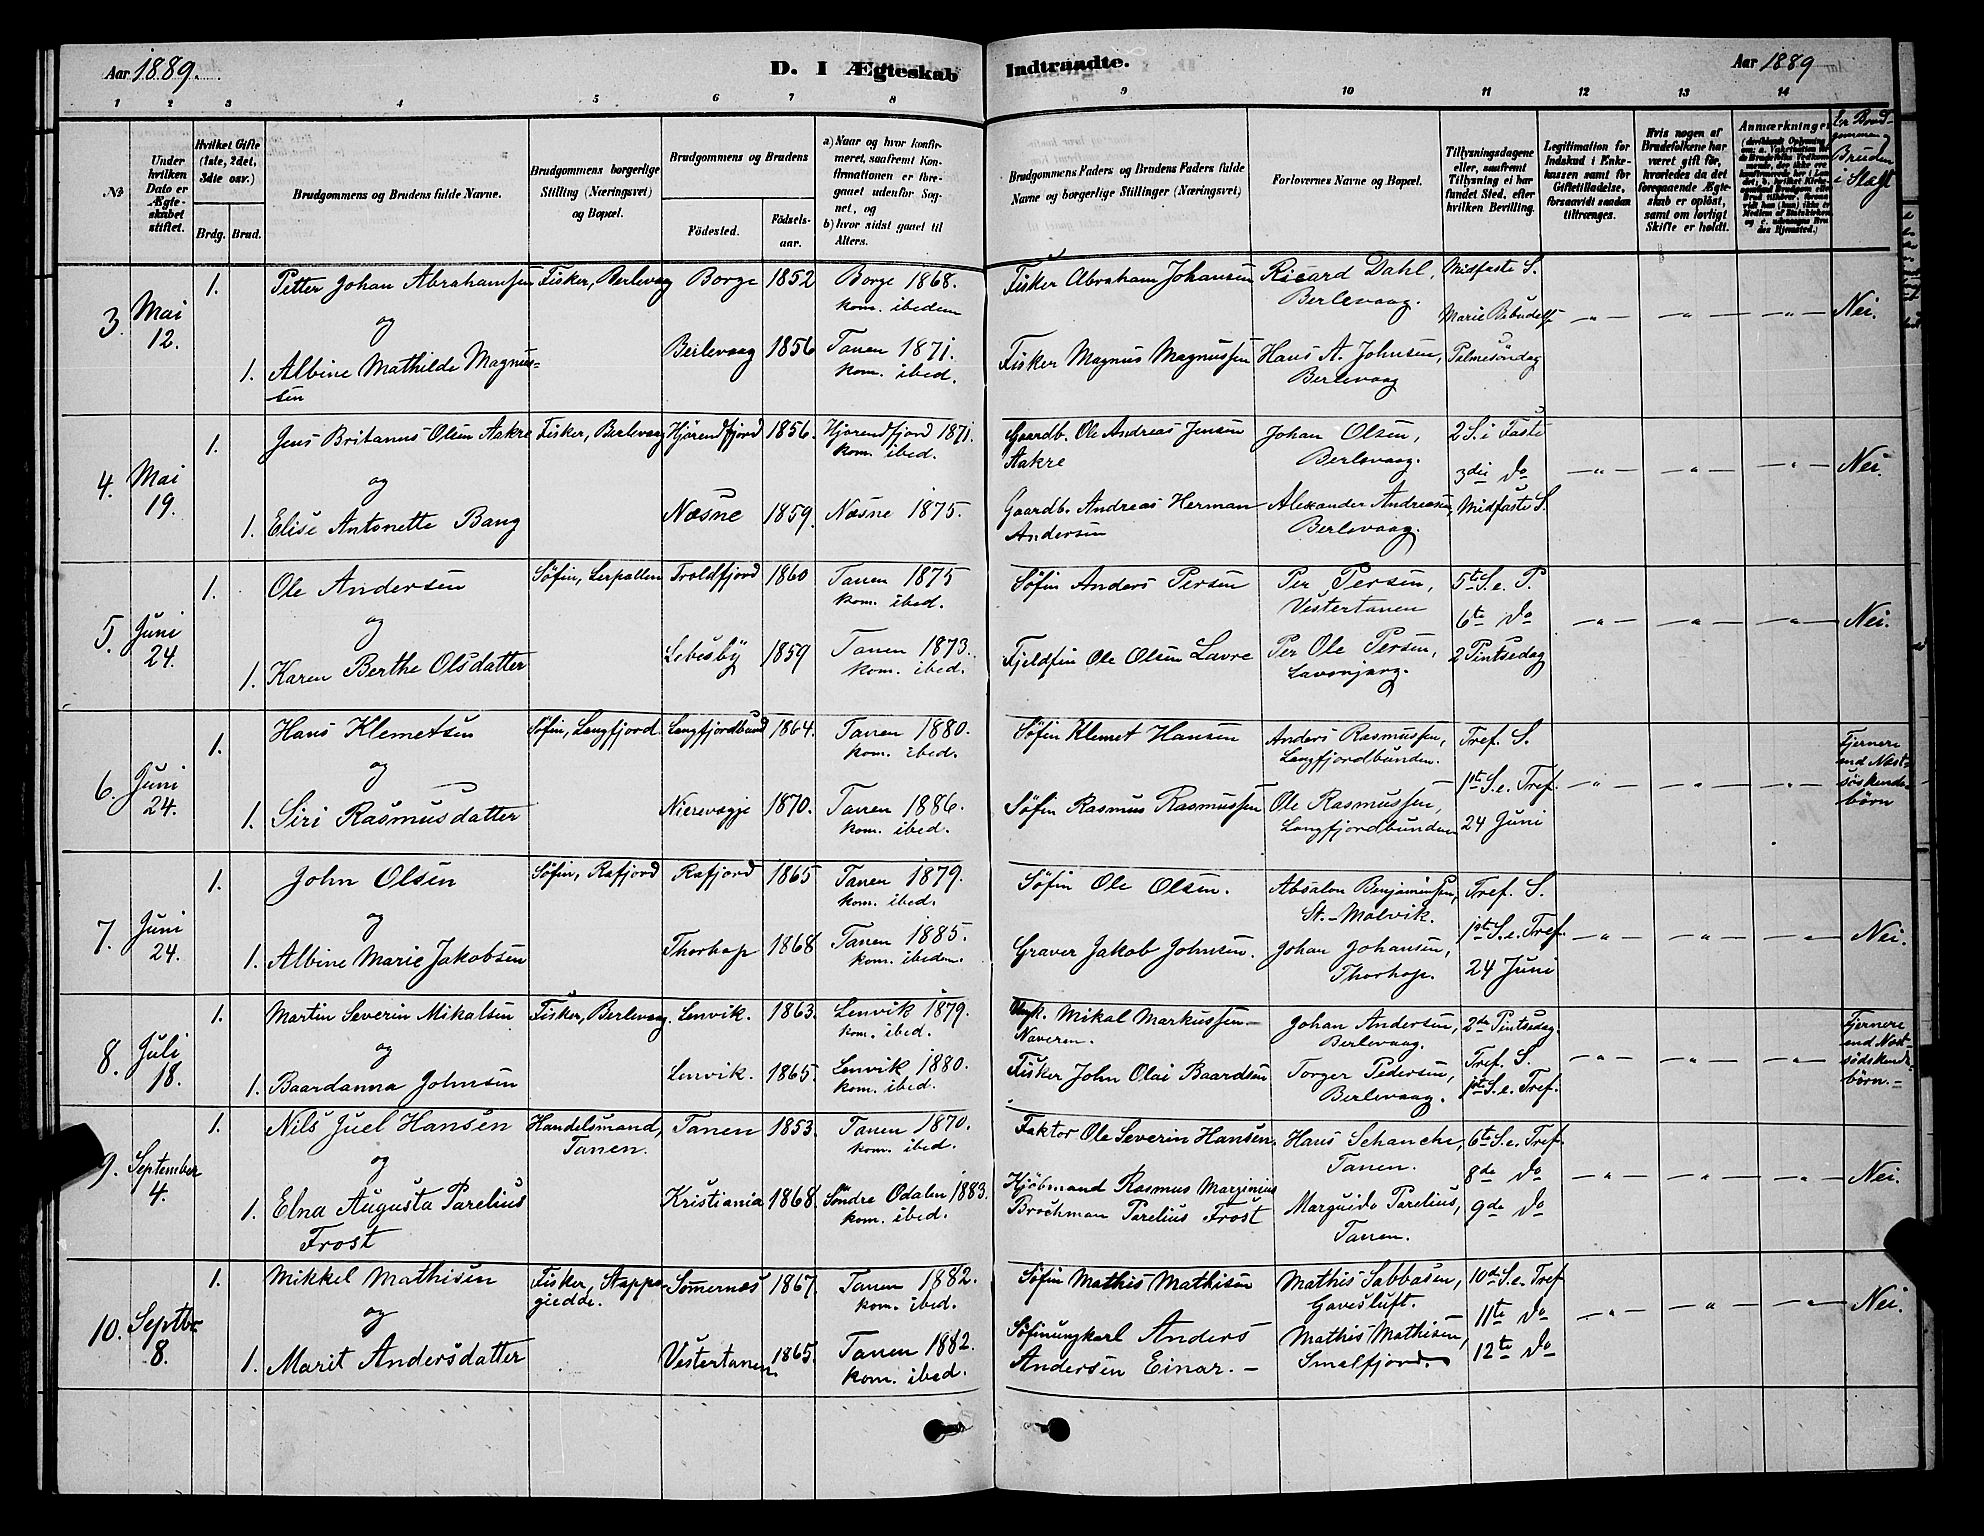 Aar 1889.
D. I Ægteskab Indtraadte.
Aar 1889
1 2 3 4 5 6 7 8 9 10 11 12 13 14
№
Under hvilken Dato er Ægteskabet stiftet.
Hvilket Gifte (1ste, 2det, 3die osv.)
Brdg. Brud.
Brudgommens og Brudens fulde Navne.
Brudgommens borgerlige Stilling (Næringsvei) og Bopæl.
Brudgommens og Brudens
Fødested.
Fødselsaar.
a) Naar og hvor konfirmeret, saafremt Konfirmationen er foregaaet udenfor Sognet, og
b) hvor sidst gaaet til Alters.
Brudgommens Faders og Brudens Faders fulde Navne og borgerlige Stillinger (Næringsvei)
Forlovernes Navne og Bopæl.
Tillysningsdagene eller, saafremt Tillysning ei har fundet Sted, efter hvilken Bevilling.
Legitimation for Indskud i Enkekassen samt for Giftetilladelse, forsaavidt saadan tiltrænges.
Hvis nogen af Brudefolkene har været gift før, hvorledes da det foregaaende Ægteskab er opløst, samt om lovligt Skifte er holdt.
Anmærkninger
Er Brudgommen og Bruden i Slægt
3. Mai 12. 1. Petter Johan Abrahamsen Fisker, Berlevaag Borge 1852 Borge 1868. kom. ibedem Fisker Abraham Johansen Ricard Dahl, Berlevaag. Midfaste S.
og
Marie Bebudelse -„- -„- -„- Nei.
1. Albine Mathilde Magnussen Berlevaag 1856 Tanen 1871. kom. ibed. Fisker Magnus Magnussen Hans A. Johnsen, Berlevaag Palmesöndag
4. Mai 19. 1. Jens Britanus Olsen Aakre Fisker, Berlevaag Hjörendfjord 1856. Hjörendfjord 1871. kom. ibed. Gaardb. Ole Andreas Jensen Aakre Johan Olsen, Berlevaag. 2 S. i Faste
og
3die do -„- -„- -„- Nei.
1. Elise Antonette Bang Næsne 1859. Næsne 1875. Gaardb. Andreas Herman Andersen Alexander Andreasen, Berlevaag. Midfaste S.
5. Juni 24. 1. Ole Andersen Söfin, Lerpallen Troldfjord 1860 Tanen 1875 kom. ibed. Söfin Anders Persen Per Persen, Vestertanen 5te S. e. P.
og
6te do -„- -„- -„- Nei.
1. Karen Berthe Olsdatter Lebesby 1859 Tanen 1873. kom. ibed. Fjeldfin Ole Olsen Lavre Per Ole Persen, Lavonjarg. 2 Pintsedag
6. Juni 24. 1. Hans Klemetsen Söfin, Langfjord. Langfjordbund 1864. Tanen 1880. kom. ibed. Söfin Klemet Hansen Anders Rasmussen, Langfjordbunden. Tref. S.
og
1ste S. e. Tref. -„- -„- -„- Fjernere end Næstsöskendebörn
1. Siri Rasmusdatter Nierevagje 1870. Tanen 1886. kom. ibed. Söfin Rasmus Rasmussen Ole Rasmussen, Langfjordbunden 24 Juni
7. Juni 24. 1. John Olsen Söfin, Rafjord Rafjord 1865 Tanen 1879. kom. ibed. Söfin Ole Olsen. Absalon Benjaminsen, St.-Molvik. Tref. S.
og
1ste S. e. Tref. -„- -„- -„- Nei.
1. Albine Marie Jakobsen Thorhop 1868 Tanen 1885. kom. ibedem. Graver Jakob Johnsen. Johan Johansen, Thorhop. 24 Juni
8. Juli 18. 1. Martin Severin Mikalsen Fisker, Berlevaag. Lenvik. 1863. Lenvik 1879. kom. ibed. Mikal Markussen - Naveren. Johan Andersen, Berlevaag. 2den Pintsedag.
og
Tref. S. -„- -„- -„- Fjernere end Næstsödskendebörn.-
1. Baardanna Johnsen Lenvik. 1865. Lenvik 1880. kom. ibed. Fisker John Olai Baardsen Torger Pedersen, Berlevaag. 1ste S. e. Tref.
9. September 4. 1. Nils Juel Hansen Handelsmand, Tanen. Tanen 1853. Tanen 1870. kom. ibed. Faktor Ole Severin Hansen. Hans Schanche, Tanen. 6te S. e. Tref.
og
8de do -„- -„- -„- Nei.
1. Elna Augusta Parelius Frost Kristiania 1868. Söndre Odalen 1883. kom. ibed. Kjöbmand Rasmus Marginius Brochman Parelius Frost Marguido Parelius, Tanen. 9de do
10. Septbr 8. 1. Mikkel Mathisen Fisker, Stappogiedde. Somernæs 1867. Tanen 1882. kom. ibed. Söfin Mathis Mathisen Mathis Sabbasen, Gavesluft. 10de S. e. Tref
og
11te do -„- -„- -„- Nei.
1. Marit Andersdatter Vestertanen 1865. Tanen 1882. kom. ibed. Söfinungkarl Anders Andersen Einar. - Mathis Mathisen, Smalfjord. 12te do